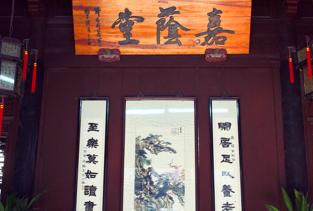 嘉蔭堂
閒居足以養老
至樂莫如讀書